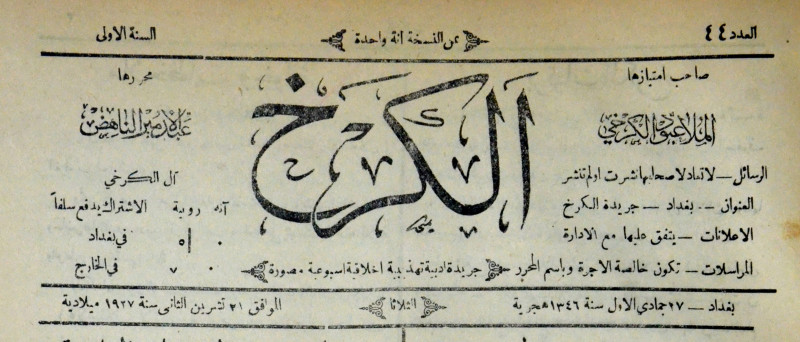 العدد ٤٤
ثمن النسخة آنة واحدة
السنة الاولى
صاحب امتيازها
الملا عبود الكرخي
الكرخ
محررها
عبد الامير الناهض
الرسائل — لا تعاد لاصحابها نشرت او لم تنشر
العنوان — بغداد — جريدة الكرخ
الاعلانات — يتفق عليها مع الادارة
المراسلات — تكون خالصة الاجرة وباسم المحرر
آل الكرخي
آنه روبية الاشتراك يدفع سلفاً
٠ ٥ في بغداد
٠ ٧ في الخارج
جريدة ادبية تهذيبية اخلاقية اسبوعية مصورة
بغداد — ٢٧ جمادي الاول سنة ١٣٤٦ هجرية
الثلاثا
الموافق ٢١ تشرين الثاني سنة ١٩٢٧ ميلادية